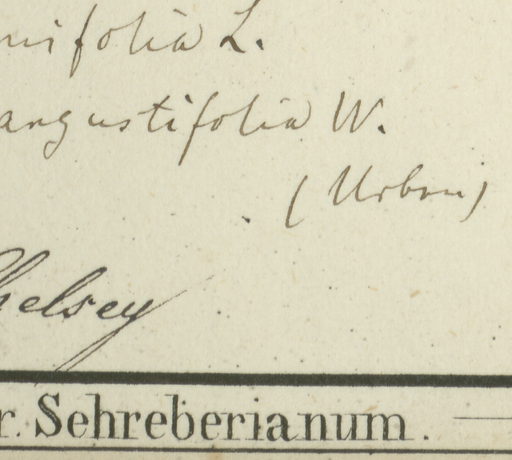 nifolia L.
angustifolia W.
(Urban)
helsey
r. Sehreberianum.